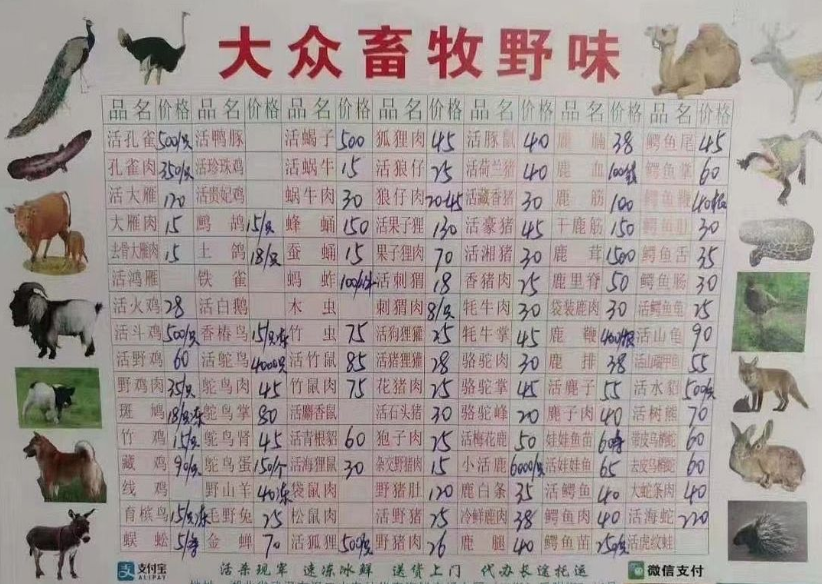 大众畜牧野味
品名 价格 品名 价格 品名 价格 品名 价格 品名 价格 品名 价格 品名 价格
活孔雀 500/只 活鸭豚 活蝎子 500 狐狸肉 45 活豚鼠 40 鹿脯 38 鳄鱼尾 45
孔雀肉 350/只 活珍珠鸡 活蜗牛 15 活狼仔 25 活荷兰猪 40 鹿血 鳄鱼掌 60
活大雁 120 活贵妃鸡 蜗牛肉 30 狼仔肉 20-45 活藏香猪 30 鹿筋 100 鳄鱼
大雁肉 15 鹧鸪 15/只 蜂蛹 150 活果子狸 130 活豪猪 45 干鹿筋 150 鳄鱼肚 30
去骨大雁肉 15 土鸽 18/只 蚕蛹 15 果子狸肉 70 活湘猪 30 鹿茸 1500 鳄鱼舌 35
活鸿雁 铁雀 蚂蚱 活刺猬 18 香猪肉 25 鹿里脊 50 鳄鱼肠 30
活火鸡 28 活白鹅 木虫 刺猬肉 8/只 牦牛肉 30 袋装鹿肉 30 活鳄鱼龟 25
活斗鸡 500/只 香椿鸟 竹虫 75 活狗狸獾 25 牦牛掌 45 鹿鞭 活山龟 90
活野鸡 60 活鸵鸟 4000只 活竹鼠 85 活猪狸獾 28 骆驼肉 30 鹿排 38 55
野鸡肉 35/只 鸵鸟肉 45 竹鼠肉 75 花猪肉 25 骆驼掌 45 活麂子 55 活水貂 500/只
斑鸠 鸵鸟掌 80 活麝香鼠 活石头猪 30 骆驼峰 20 麂子肉 40 活树熊 70
竹鸡 15/只 鸵鸟肾 45 活青根貂 60 狍子肉 25 活梅花鹿 50 娃娃鱼苗 带皮乌梢蛇 60
藏鸡 90/只 鸵鸟蛋 150/个 活海狸鼠 30 杂交野猪肉 15 小活鹿 6000/只 活娃娃鱼 65 去皮乌梢蛇 60
线鸡 野山羊 40冻 袋鼠肉 野猪肚 120 鹿白条 35 活鳄鱼 40 大蛇条肉 40
育槟鸟 15/只冻 毛野兔 25 松鼠肉 活野猪 25 冷鲜鹿肉 38 鳄鱼肉 40 活海蛇 220
蜈蚣 金蝉 70 活狐狸 500/只 野猪肉 26 鹿腿 40 鳄鱼苗 活虎纹蛙
支付宝 ALIPAY 活杀现宰 速冻冰鲜 送货上门 代办长途托运 微信支付